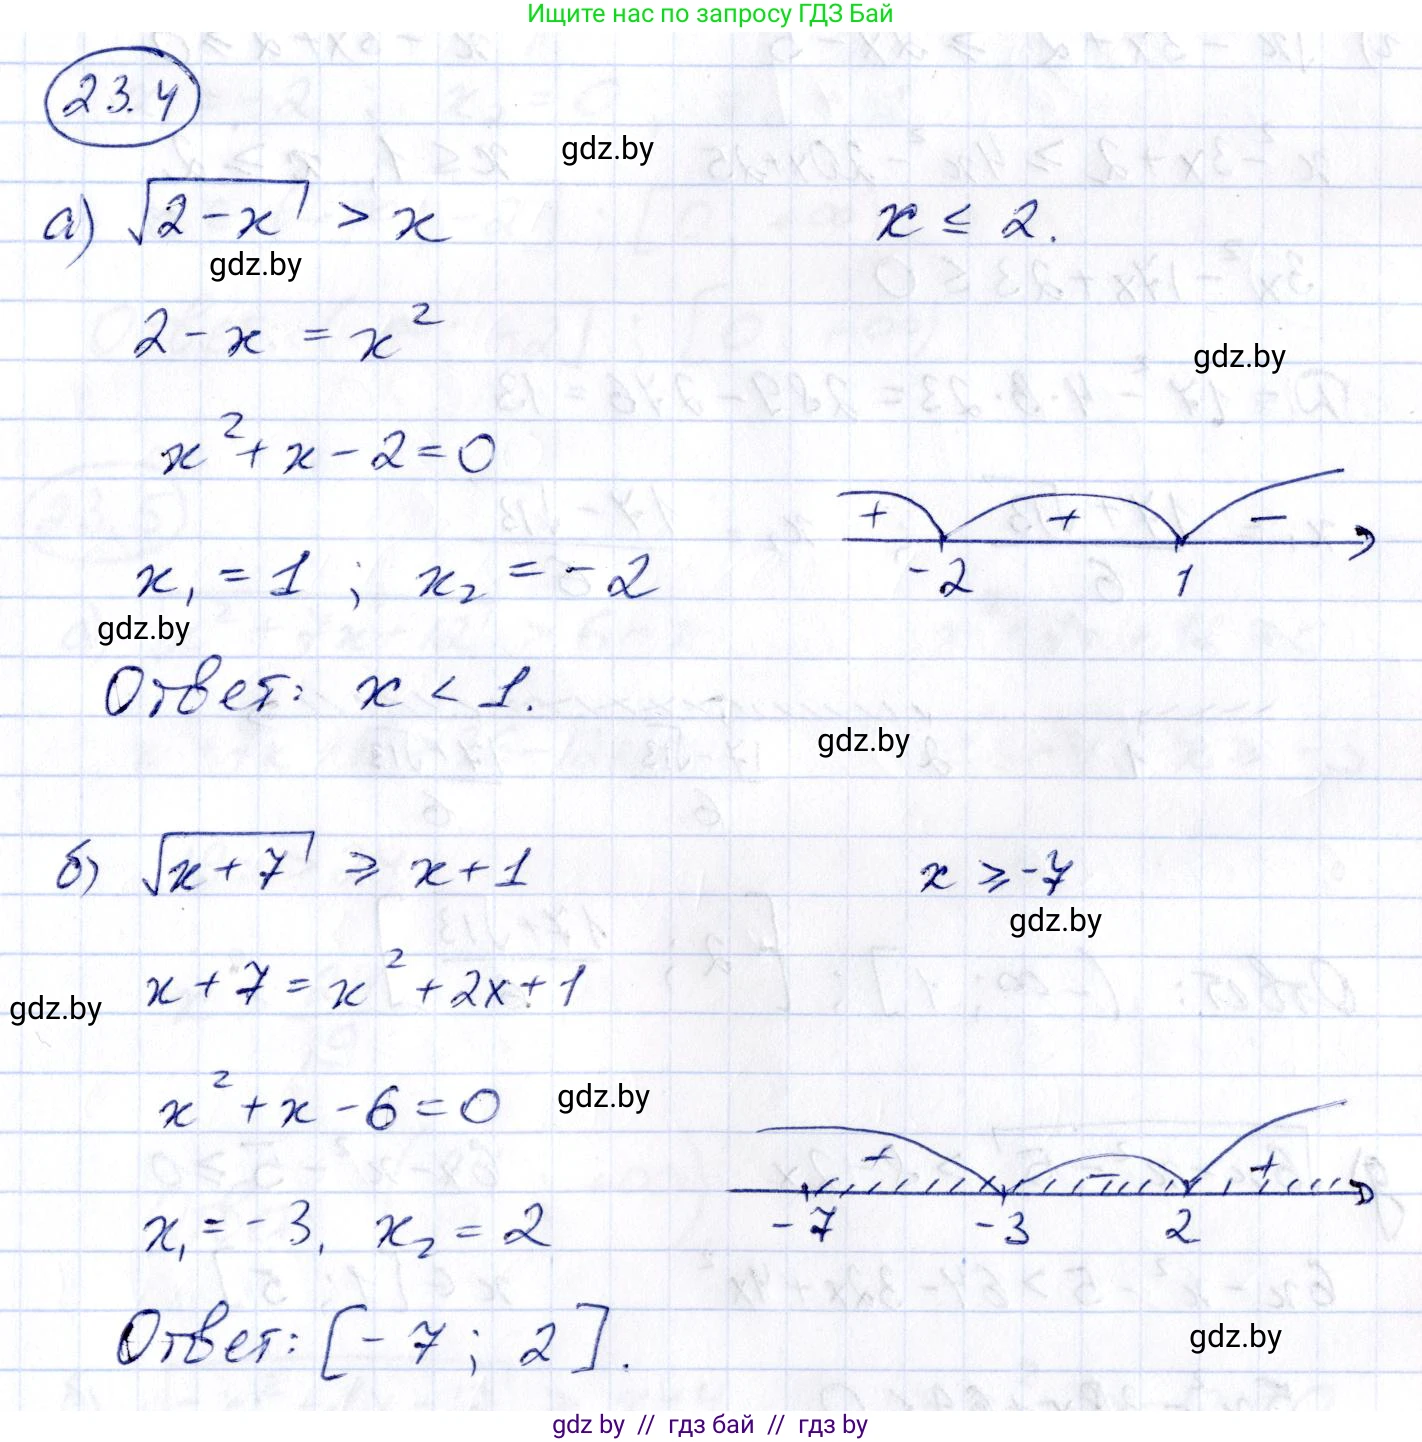 Ищите нас по запросу ГДЗ Бай
23.4
gdz.by
а) √(2-x) > x
x ≤ 2.
gdz.by
2-x = x²
gdz.by
x²+x-2=0
+ + -
-2 1
x₁ = 1 ; x₂ = -2
gdz.by
Ответ: x < 1.
gdz.by
б) √(x+7) ⩾ x+1
x ⩾ -7
gdz.by
x+7 = x²+2x+1
gdz.by
x²+x-6=0
gdz.by
+ - +
-7 -3 2
x₁ = -3, x₂ = 2
Ответ: [-7; 2].
gdz.by
gdz by // гдз бай // гдз by